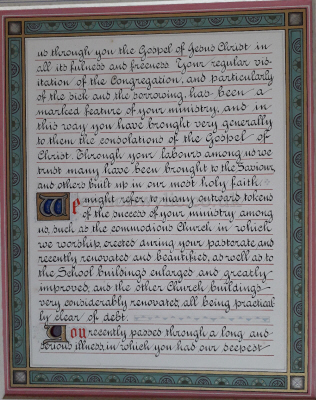 us through you the Gospel of Jesus Christ in
all its fulness and freeness. Your regular vis-
itation of the Congregation, and particularly
of the sick and the sorrowing, has been a
marked feature of your ministry, and in
this way you have brought very generally
to them the consolations of the Gospel of
Christ. Through your labours among us we
trust many have been brought to the Saviour,
and others built up in our most holy faith.
We might refer to many outward tokens
of the success of your ministry among
us, such as the commodious Church in which
we worship, erected during your pastorate and
recently renovated and beautified, as well as to
the School buildings enlarged and greatly
improved, and the other Church buildings
very considerably renovated, all being practical-
ly clear of debt.
You recently passed through a long and
serious illness, in which you had our deepest